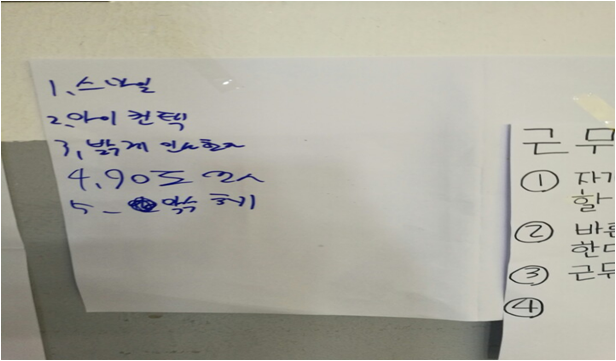 1. 스마일
2. 아이 컨텍
3. 밝게 인사하자
4. 90도 인사
5 - 악수 하기
근무
① 자기
할
② 바른
한다
③ 근무
④